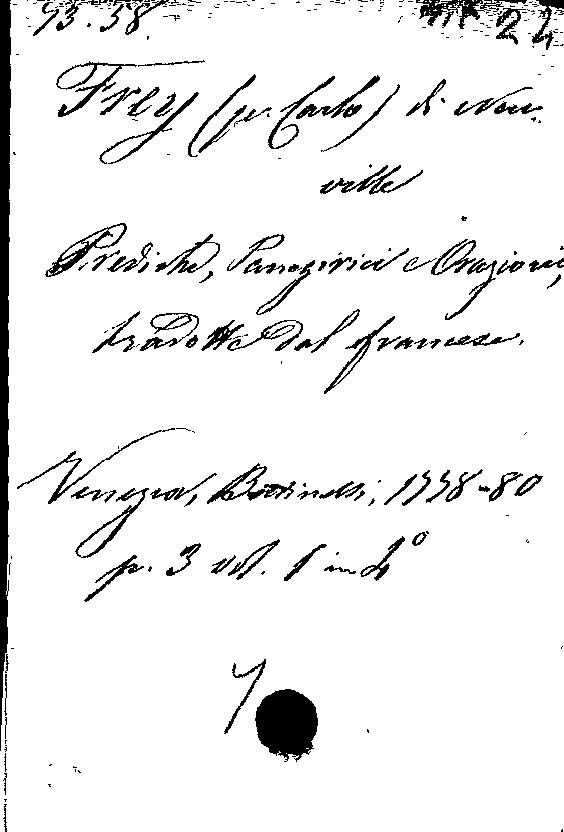 93.38.
24
Frey (p. Carlo) di Neu-
ville
Prediche, Panegirici e Orazioni,
tradotte dal francese.
Venezia, Bassinelli, 1778-80
p. 3 vol. 1 in 4º